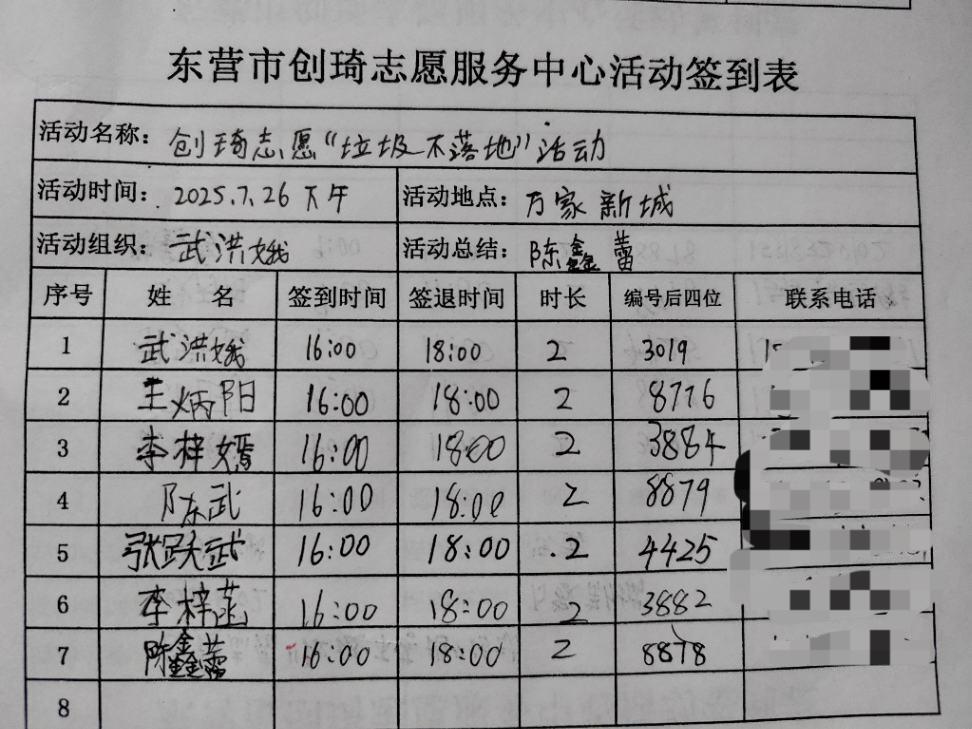 东营市创琦志愿服务中心活动签到表
活动名称： 创琦志愿“垃圾不落地”活动
活动时间： 2025.7.26 下午 活动地点： 万家新城
活动组织： 武洪娥 活动总结： 陈鑫蕾
序号 姓 名 签到时间 签退时间 时长 编号后四位 联系电话
1 武洪娥 16:00 18:00 2 3019
2 王炳阳 16:00 18:00 2 8776
3 李梓嫣 16:00 18:00 2 3884
4 陈武 16:00 18:00 2 8879
5 张跃武 16:00 18:00 2 4425
6 李梓菡 16:00 18:00 2 3882
7 陈鑫蕾 16:00 18:00 2 8878
8